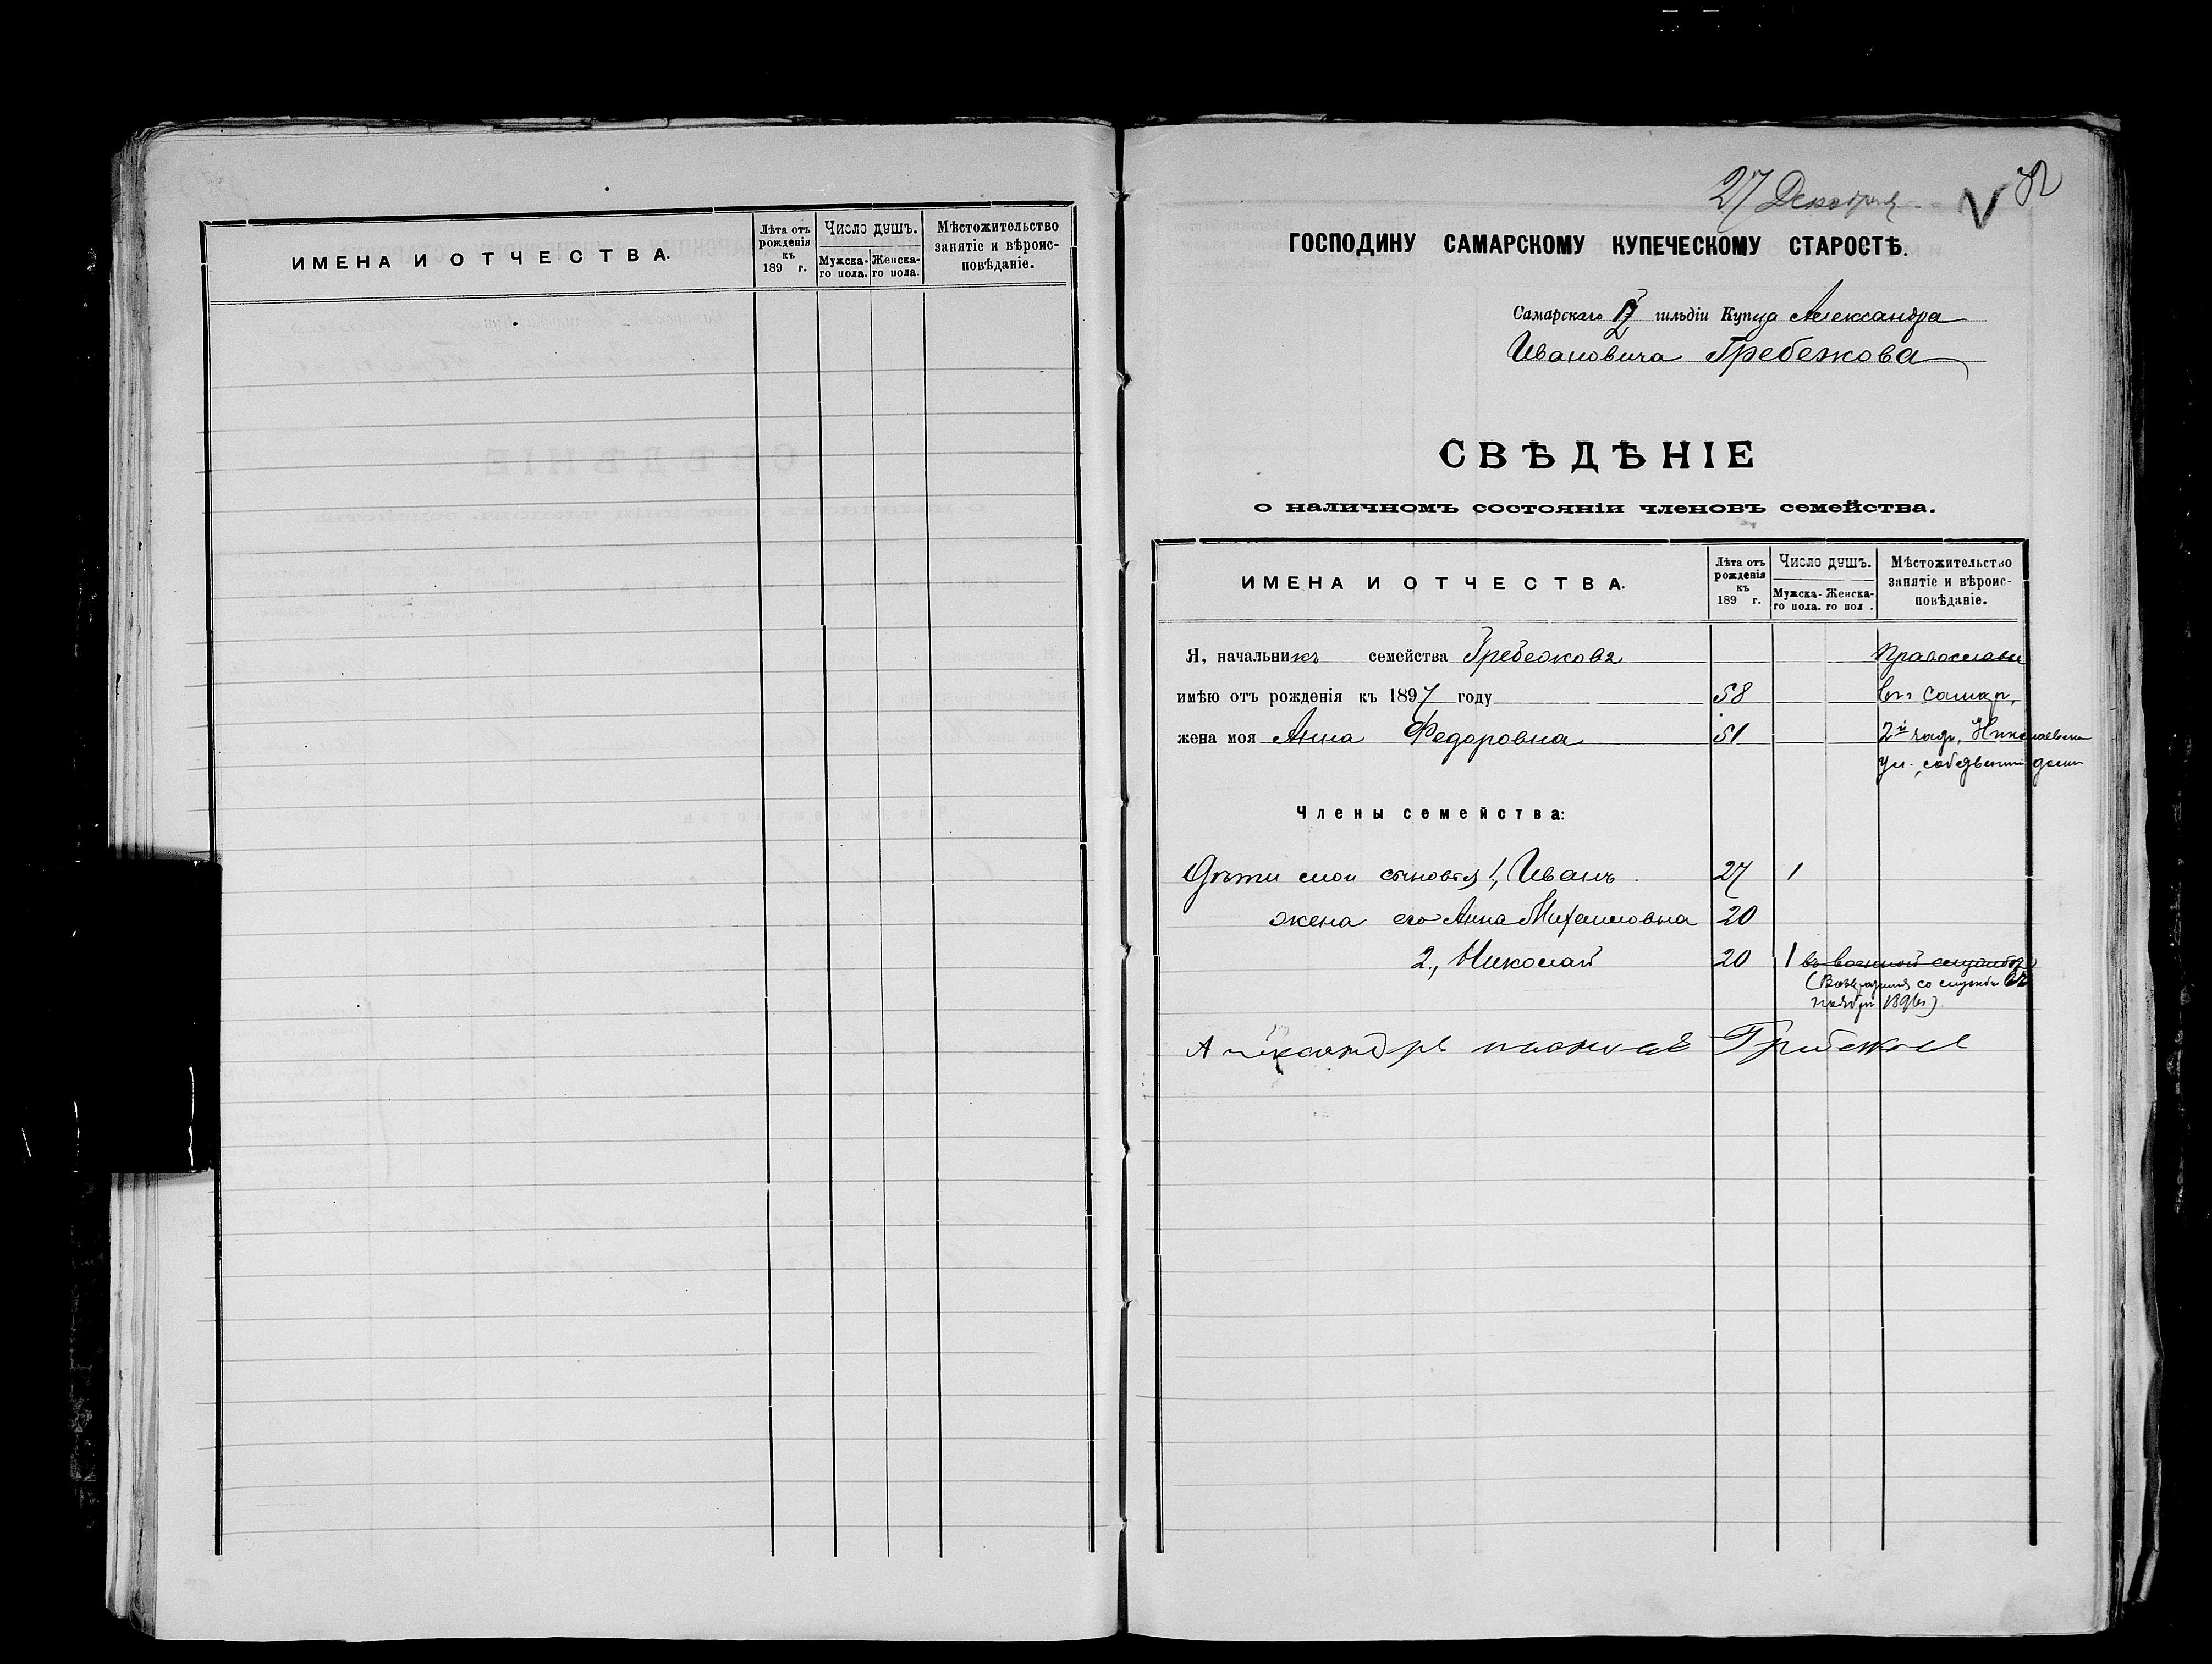 ИМЕНА И ОТЧЕСТВА.
Лѣта отъ рожденія къ 189 г.
Число душъ.
Мужска-го пола.
Женска-го пола.
Мѣстожительство занятіе и вѣроис-повѣданіе.
27 Декабря
V
ГОСПОДИНУ САМАРСКОМУ КУПЕЧЕСКОМУ СТАРОСТѢ.
Самарскаго 2 гильдіи Купца Александра
Ивановича Гребежкова
СВѢДѢНІЕ
о наличномъ состояніи членовъ семейства.
ИМЕНА И ОТЧЕСТВА.
Лѣта отъ рожденія къ 189 г.
Число душъ.
Мужска-го пола.
Женска-го пол .
Мѣстожительство занятіе и вѣроис-повѣданіе.
Я, начальникъ семейства Гребежковъ Православн
имѣю отъ рожденія къ 1897 году 58 въ Самар,
жена моя Анна Федоровна 51 2й част, Николаевск
ул. собствен домъ
Члены семейства:
Дѣти мои сыновья 1, Иванъ 27 1
жена его Анна Михаиловна 20
2, Николай 20 1 въ военной службѣ
(Возвратился со службы въ
ноябрѣ 1896г)
Александръ Гребежковъ